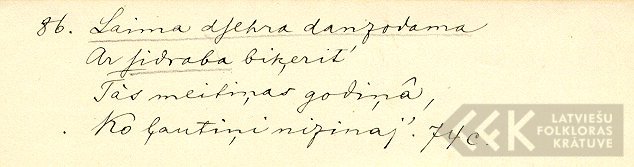 86. Laima dsehra danzodama
Ar sidraba biķerit'
Tàs meitiņas godiņâ,
Ko ļautiņi nizinaj'. 74c.
LATVIEŠU
FOLKLORAS
KRĀTUVE